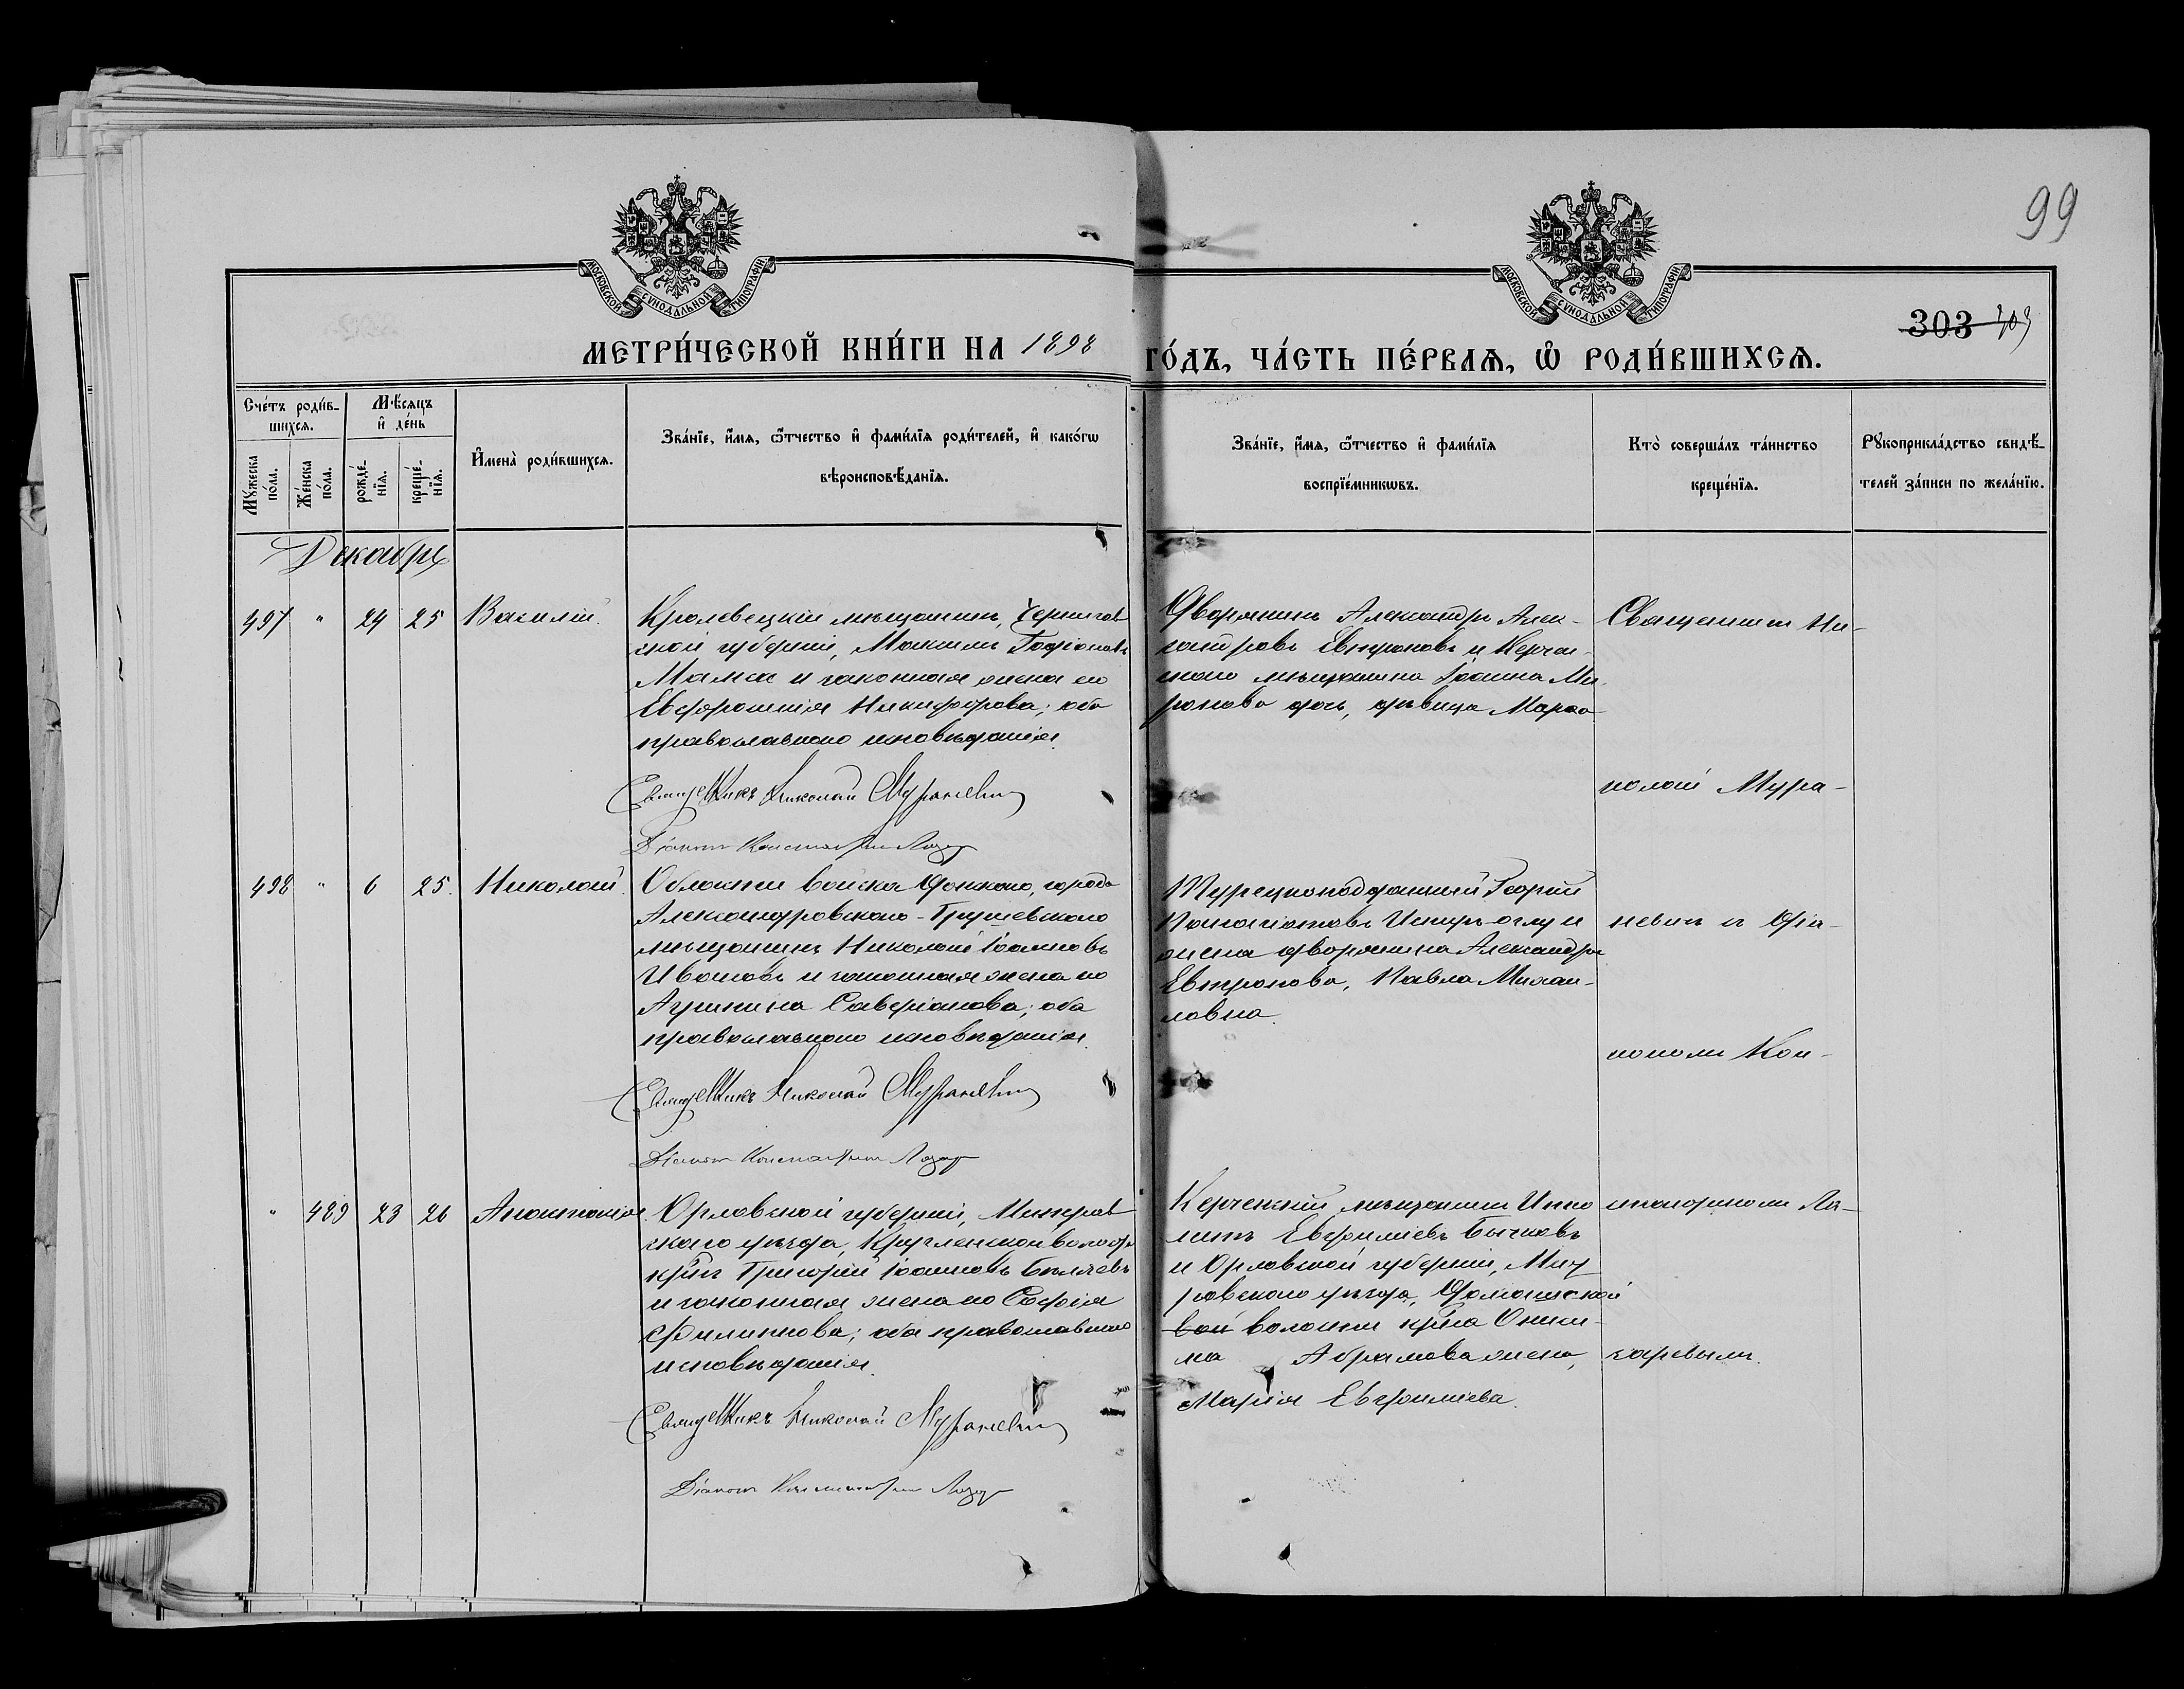 99
МОСКОВСКОЙ СѴНОДАЛЬНОЙ ТИПОГРАФІИ
МОСКОВСКОЙ СѴНОДАЛЬНОЙ ТИПОГРАФІИ
303
МЕТРИ́ЧЕСКОЙ КНИ́ГИ НА 1898 ГО́ДЪ, ЧА́СТЬ ПЕ́РВАЯ, Ѡ РОДИ́ВШИХСЯ.
Сче́тъ роди́в-
шихся.
Мѣ́сяцъ
и҆ де́нь
Мꙋ́жеска
по́ла.
Же́нска
по́ла.
рожде́-
нїя.
креще́-
нїя.
И҆мена̀ роди́вшихся.
Зва́нїе, и҆́мя, ѻ҆́тчество и҆ фами́лїя роди́телей, и҆ како́гѡ
вѣроисповѣ́данїя.
Зва́нїе, и҆́мя, ѻ҆́тчество и҆ фами́лїя
воспрїе́мникѡвъ.
Кто̀ соверша́лъ та́инство
креще́нїя.
Рꙋкоприкла́дство свидѣ́-
телей за́писи по жела́нїю.
Декабрь
497 " 24 25 Василій.
Кролевецкій мѣщанинъ, Чернигов
ской губерніи, Максимъ
Мамса и законная жена его
Евфросинія Никифорова; оба
православнаго исповѣданія.
Священникъ Николай Мураневичъ
Діаконъ Константинъ Лазар
Дворянинъ Александръ Алек-
сандровъ Евтроповъ и Керчен-
скаго мѣщанина Іоанна Ми-
ронова дочь, дѣвица Марѳа
Священникъ Ни-
колай Мура-
498 " 6 25. Николай.
Области войска Донскаго, города
Александровскаго-Грушевскаго
мѣщанинъ Николай Іоанновъ
Ивановъ и законная жена его
Агрипина Саверіанова; оба
православнаго исповѣданія.
Священникъ Николай Мураневичъ
Діаконъ Константинъ Лазар
Турецкоподданный Георгій
жена дворянина Александра
Евтропова, Павла Михаи-
ловна.
невичъ съ Діа-
кономъ Кон-
" 489 23 26 Анастасія.
Орловской губерніи, Дмитров
скаго уѣзда, Кругленской волости
кр҃нъ Григорій Іоанновъ Бѣляевъ
и законная жена его Софія
Филиппова; оба православнаго
исповѣданія.
Священникъ Николай Мураневичъ
Діаконъ Константинъ Лазар
Керченскій мѣщанинъ Иппо
литъ Евфиміевъ Бычковъ
и Орловской губерніи, Дмит
ровскаго уѣзда, Домашской
вой волости кр҃на Оники-
ма Абрамова жена,
Марія Евфиміева.
стантиномъ Ла-
заревымъ.